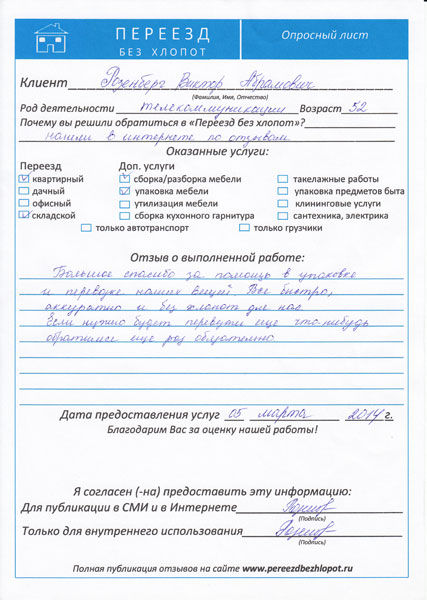 ПЕРЕЕЗД
БЕЗ ХЛОПОТ
Опросный лист
Клиент Розенберг Виктор Абрамович
(Фамилия, Имя, Отчество)
Род деятельности телекоммуникации Возраст 52
Почему вы решили обратиться в «Переезд без хлопот»?
нашли в интернете по отзывам
Оказанные услуги:
Переезд Доп. услуги
квартирный сборка/разборка мебели такелажные работы
дачный упаковка мебели упаковка предметов быта
офисный утилизация мебели клининговые услуги
складской сборка кухонного гарнитура сантехника, электрика
только автотранспорт только грузчики
Отзыв о выполненной работе:
Большое спасибо за помощь в упаковке
и перевозке наших вещей. Все быстро,
аккуратно и без хлопот для нас.
Если нужно будет перевезти еще что-нибудь
обратимся еще раз обязательно.
Дата предоставления услуг 05 марта 2014 г.
Благодарим Вас за оценку нашей работы!
Я согласен (-на) предоставить эту информацию:
Для публикации в СМИ и в Интернете
(Подпись)
Только для внутреннего использования
(Подпись)
Полная публикация отзывов на сайте www.pereezdbezhlopot.ru